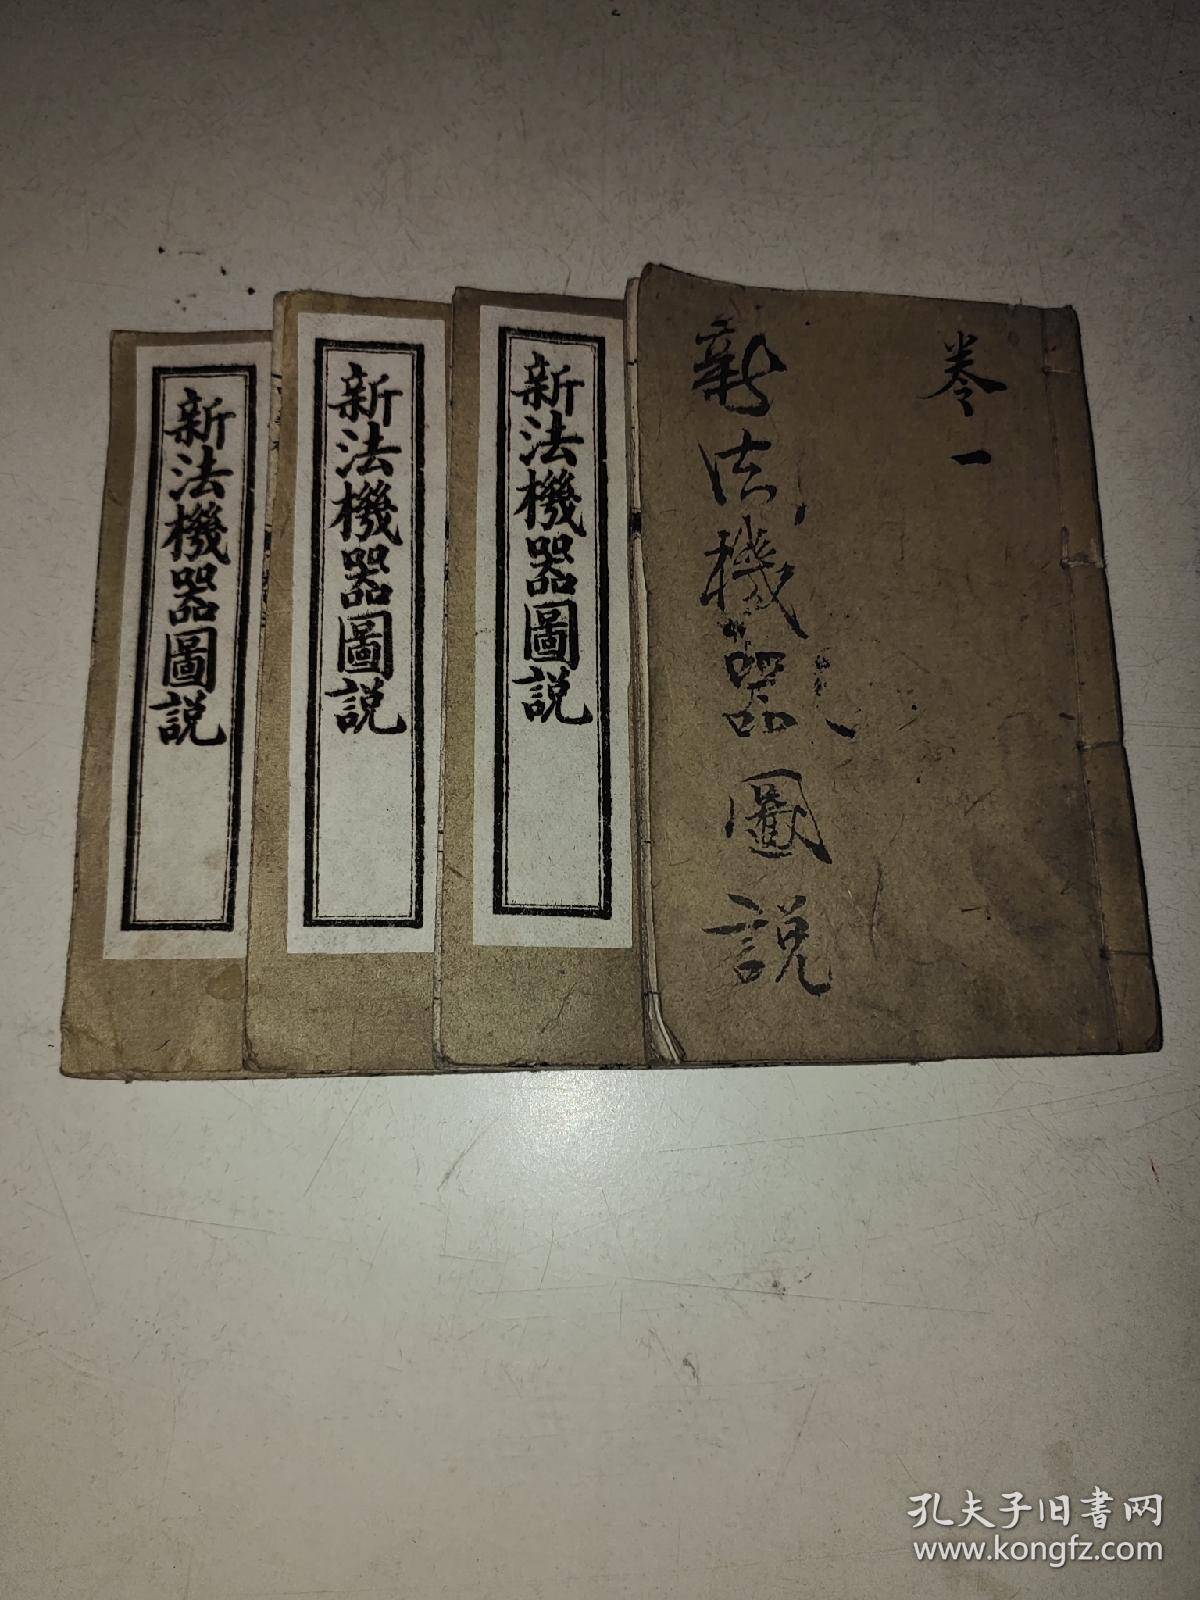 卷一
新法機器圖説
新法機器圖説
新法機器圖説
新法機器圖説
孔夫子旧书网
www.kongfz.com